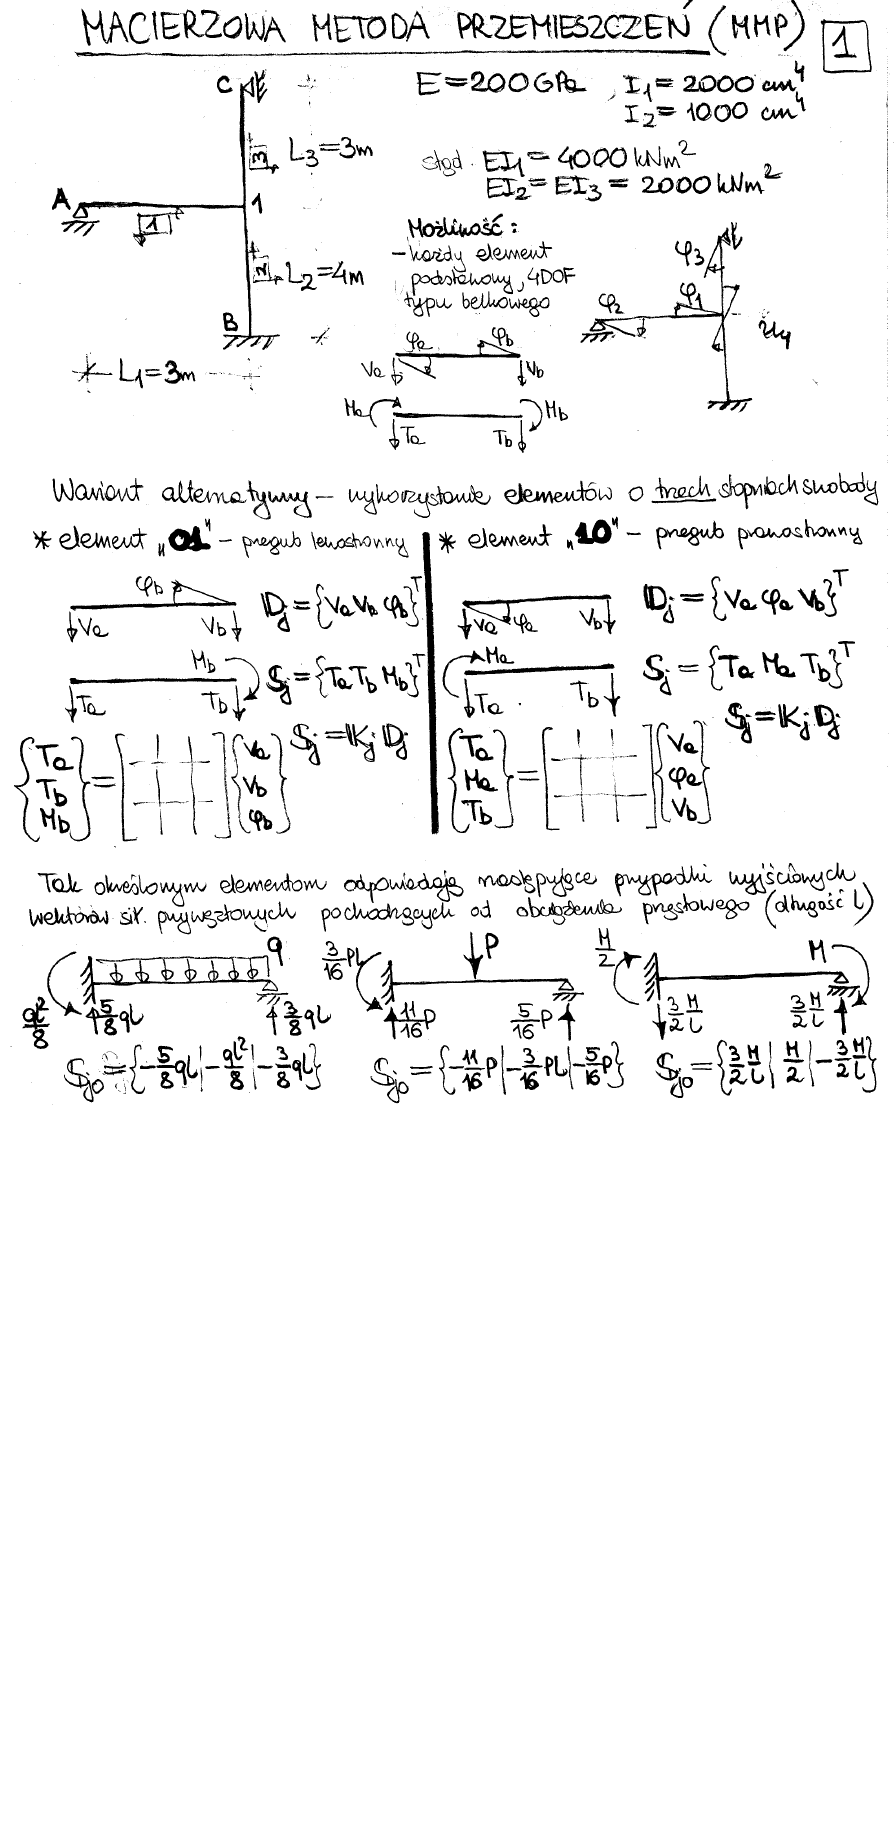 MACIERZOWA METODA PRZEMIESZCZEŃ (MMP) 1
C
E=200GPa, I₁= 2000 cm⁴
I₂= 1000 cm⁴
3 L₃=3m
stąd EI₁=4000kNm²
EI₂=EI₃= 2000kNm²
A 1 1
Możliwość:
-każdy element
podstawowy, 4DOF
typu belkowego
2 L₂=4m
B
L₁=3m
φ₃
φ₂ φ₁ u₄
φa φb
Va Vb
Ma Mb
Ta Tb
Wariant alternatywny - wykorzystanie elementów o trzech stopniach swobody
* element „01" - przegub lewostronny
φb Dj={Va Vb φb}ᵀ
Va Vb
Mb Sj={Ta Tb Mb}ᵀ
Ta Tb
Sj=Kj Dj
{Ta Tb Mb} = [ ] {Va Vb φb}
* element „10" - przegub prawostronny
Dj={Va φa Vb}ᵀ
Va φa Vb
Ma Sj={Ta Ma Tb}ᵀ
Ta Tb
Sj=Kj Dj
{Ta Ma Tb} = [ ] {Va φa Vb}
Tak określonym elementom odpowiadają następujące przypadki wyjściowych
wektorów sił przywęzłowych pochodzących od obciążenia przęsłowego (długość l)
q
ql²/8 5/8 ql 3/8 ql
Sjo={-5/8 ql|-ql²/8|-3/8 ql}
3/16 PL P
11/16 P 5/16 P
Sjo={-11/16 P|-3/16 PL|-5/16 P}
M/2 M
3/2 M/l 3/2 M/l
Sjo={3/2 M/l | M/2 |-3/2 M/l}